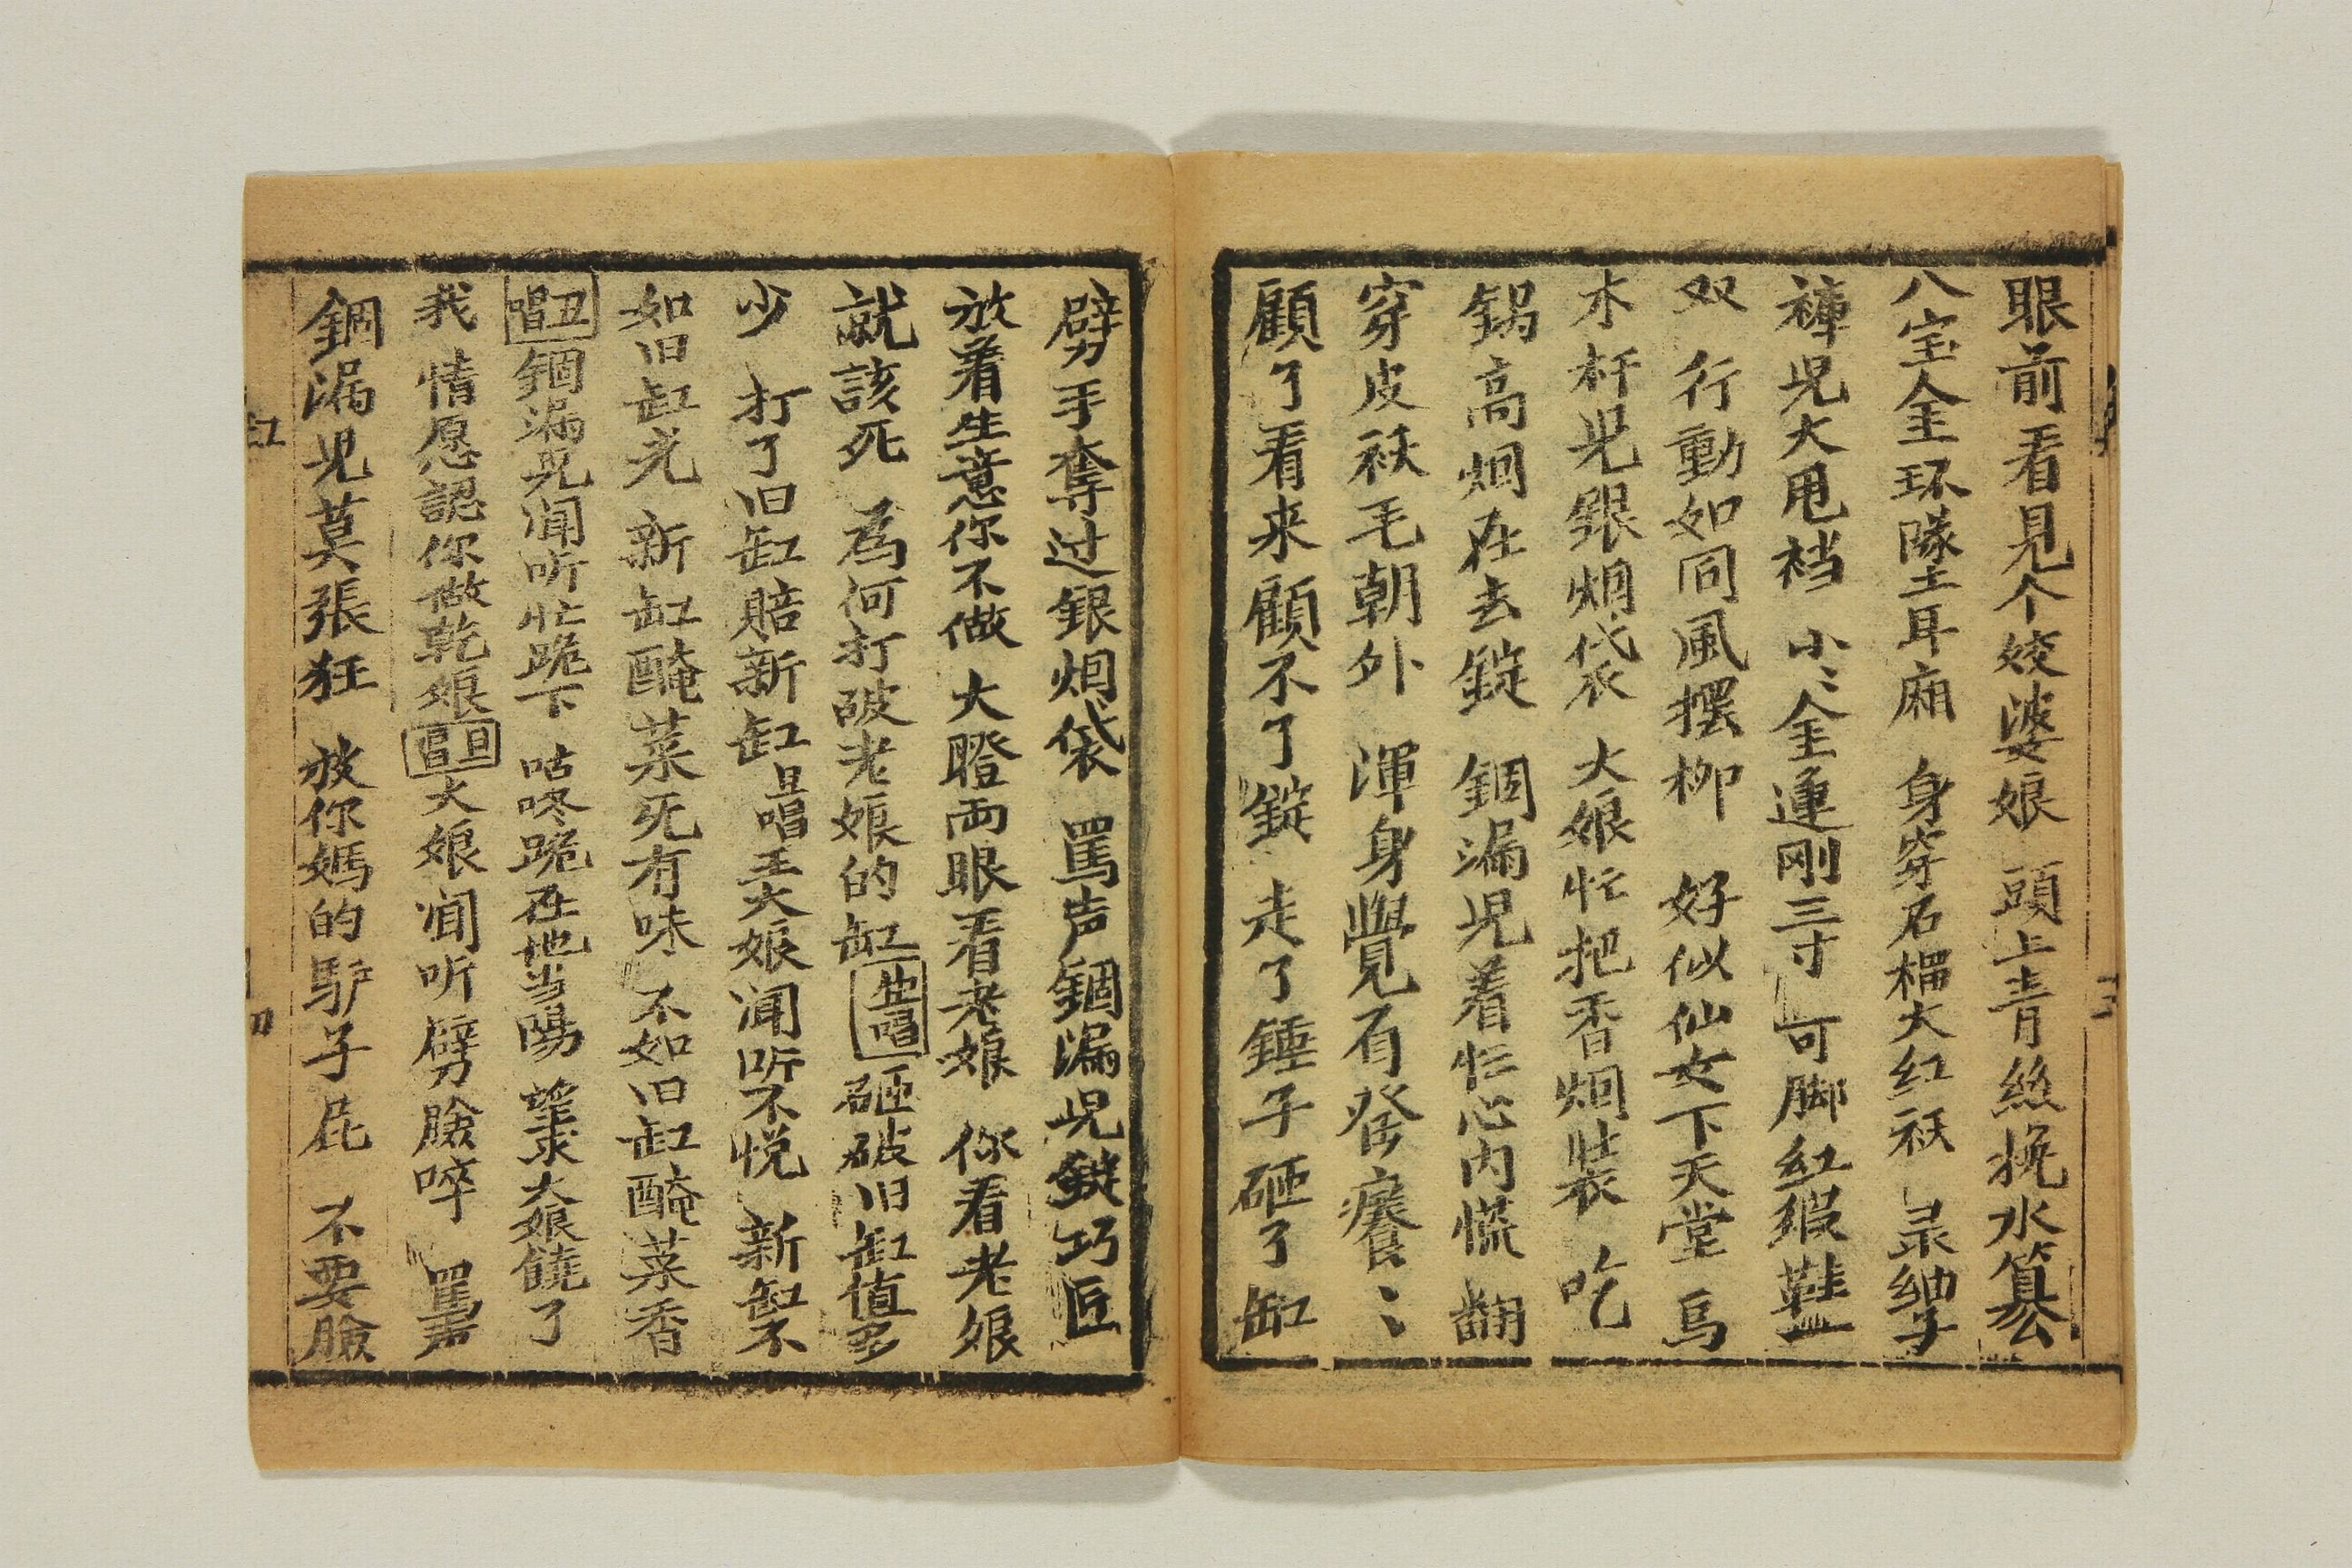 眼前看見个姣婆娘 頭上青絲挽水纂
八宝金环隊土耳廂 身穿石榴大红袄 录紬子
褲児大甩裆 小〻金蓮剛三寸 可脚红缎鞋一
双 行動如同風摆柳 好似仙女下天堂 烏
木杆児銀烟袋 大娘忙把香烟裝 吃
鍋高烟在去錠 錮漏児着忙心内慌 翻
穿皮袄毛朝外 渾身覺有發癢〻
顧了看来顧不了錠 走了錘子砸了缸
劈手奪过銀烟袋 罵声錮漏児錠巧匠
放着生意你不做 大瞪両眼看老娘 你看老娘
就該死 為何打破老娘的缸 生唱 砸破旧缸值多
少 打了旧缸賠新缸 旦唱 王大娘闻听不悦 新缸不
如旧缸光 新缸醃菜死有味 不如旧缸醃菜香
丑唱 錮漏児闻听忙跪下 咕咚跪在地当陽 望求大娘饒了
我 情愿認你做乾娘 旦唱 大娘闻听劈臉啐 罵声
錮漏児莫張狂 放你媽的驴子屁 不要臉
缸